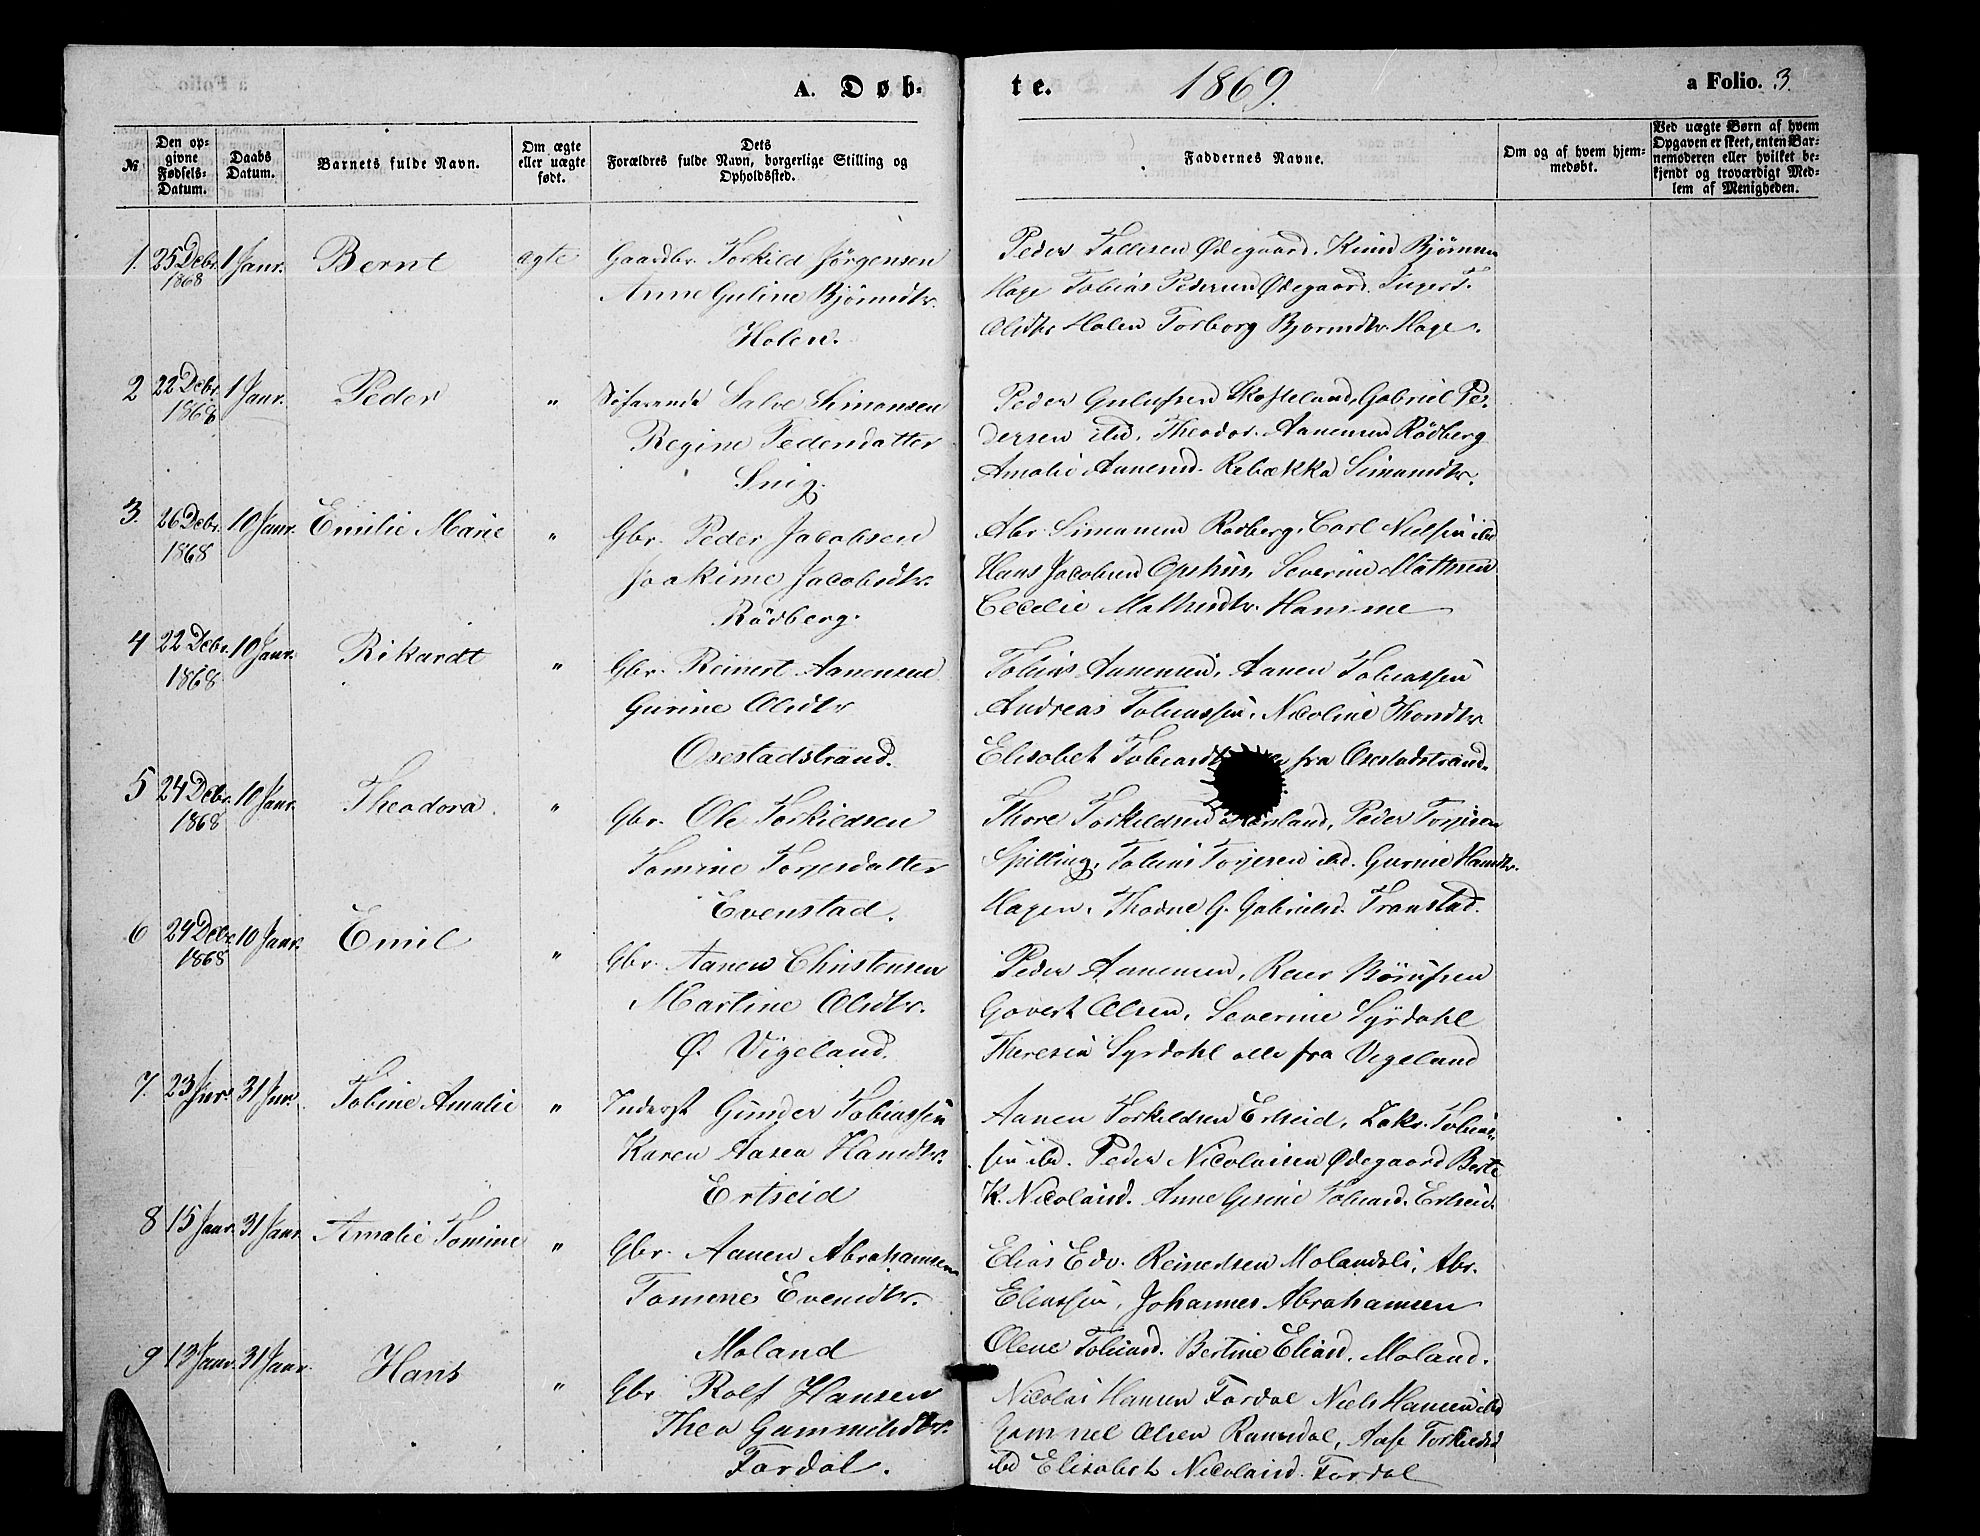 A. Døb-
te. 1869. a Folio. 3.
№ Den op-givne Fødsels-Datum. Daabs Datum. Barnets fulde Navn. Om ægte eller uægte født. Dets Forældres fulde Navn, borgerlige Stilling og Opholdssted.
Faddernes Navne. Om og af hvem hjem-medøbt. Ved uægte Børn af hvem Opgaven er skeet, enten Bar-nemoderen eller hvilket be-kjendt og troværdigt Med-lem af Menigheden.
1. 25 Debr. 1868 1 Janr. Bernt ægte Gaardbr. Torkild Jørgensen
Anne Guline Bjørnsdtr.
Holen.
Peder Tallesen Ødegaard. Knud Bjørnsen
Hage Tobias Pedersen Ødegaard.
Olsdtr Holen Torborg Bjørnsdtr. Hage.
2 22 Debr. 1868 1 Janr. Peder " Søfarende Salve Simonsen
Regine Pedersdatter
Snig.
Peder Gulufsen Skofteland, Gabriel Pe-
dersen ibd. Theodor Aanensen Rödberg
Amalie Aanensd. Rebækka Simonsdtr.
3. 26 Debr. 1868 10 Janr. Emilie Marie " Gbr. Peder Jacobsen
Joakime Jacobsdtr.
Rödberg.
Abr Simonsen Rödberg, Carl Nielsen ibd
Hans Jacobsen Severine
Cecelie Mathisdtr. Hamme
4 22 Debr. 1868 10 Janr. Rikardt " Gbr. Reinert Aanensen
Gurine Olsdtr
Osestadstrand.
Tobias Aanensen, Aanen Tobiassen
Andreas Tobiassen, Nicoline
Elisabet fra Osestadstrand.
5 24 Debr. 1868 10 Janr. Theodora " Gbr. Ole Torkildsen
Tomine Torjesdatter
Evenstad.
Thore Torkildsen Peder Torjesen
Spilling, Tobias Torjesen ibd. Gurine Hansdtr.
Hagen, G. Gabrielsd. Transtad.
6 29 Debr. 1868 10 Janr. Emil " Gbr. Aanen Christensen
Martine Olsdtr.
Ø. Vigeland.
Peder Aanensen, Reier
Govert Olsen, Severine Syrdahl
Theresia Syrdahl alle fra Vigeland
7. 23 Jnr. 31 Jnr. Tobine Amalie " Inderst Gunder Tobiassen
Karen Aasea Hansdtr.
Ertseid
Aanen Torkildsen Ertseid, Zakr. Tobias-
sen ibd. Peder Nicolaisen Ødegaard Berte
K. Nicolaisd. Anne Gesine Tobiasd. Ertseid.
8 15 Janr. 31 Janr. Amalie Tomine " Gbr. Aanen Abrahamsen
Tomine Evensdtr.
Moland
Elias Edv. Reinertsen Molandsli, Abr.
Eliassen, Johannes Abrahamsen
Olene Tobiasd. Bertine Eliasd. Moland.
9 13 Janr. 31 Janr. Hans " Gbr Rolf Hansen
Thea Gummelsdtr.
Fordal.
Nicolai Hansen Fordal Niels Hansen ibd
Olsen Aase Torkildsd
ibd Elisabeth Nicolaisd. Fordal